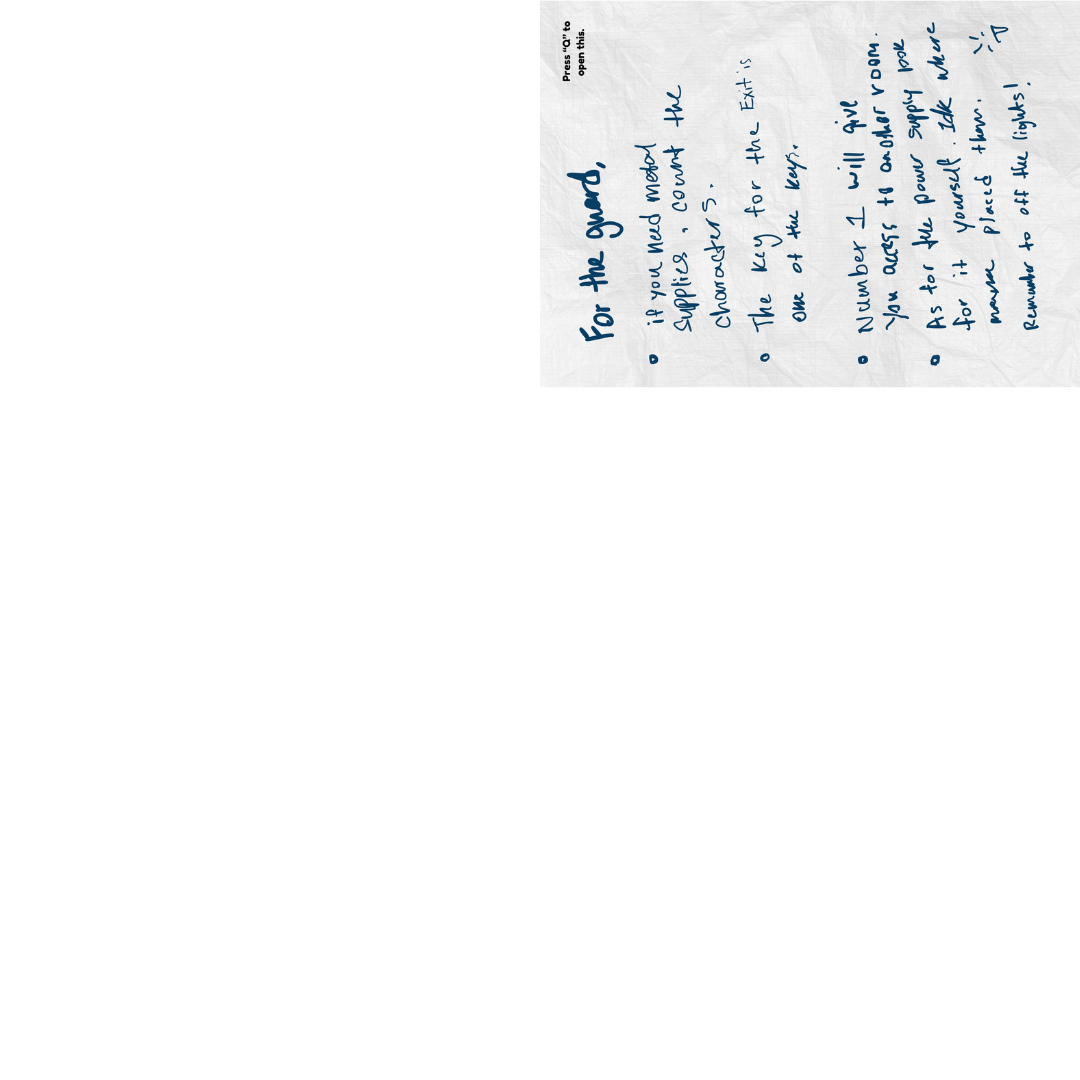 Press "Q" to
open this.
For the guard,
if you need metal
supplies, count the
characters.
The key for the Exit is
one of the keys.
Number 1 will give
you access to another room.
As for the power supply look
for it yourself. Idk where
placed them.
Remember to off the lights!